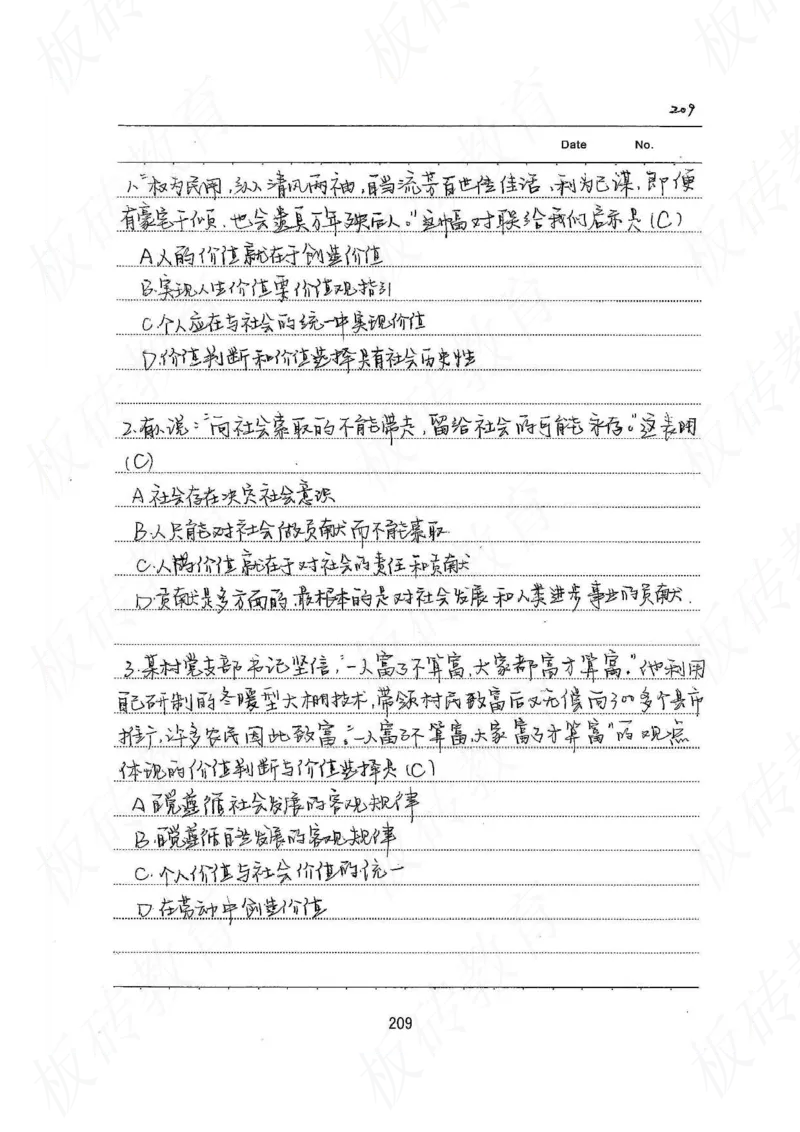 209
Date No.
1."权为民用,纵入清风两袖,自当流芳百世传佳话,利为己谋,即便
有豪宅千倾,也会遗臭万年殃后人。"这幅对联给我们启示是(C)
A人的价值就在于创造价值
B.实现人生价值要价值观指引
C个人应在与社会的统一中实现价值
D.价值判断和价值选择具有社会历史性
2.有人说:"向社会索取的不能带走,留给社会的可能永存。"这表明
(C)
A社会存在决定社会意识
B.人只能对社会做贡献而不能索取
C.人的价值就在于对社会的责任和贡献
D贡献是多方面的,最根本的是对社会发展和人类进步事业的贡献.
3.某村党支部书记坚信,"一人富了不算富,大家都富才算富。"他利用
自己研制的冬暖型大棚技术,带领村民致富后又无偿向300多个县市
推广,许多农民因此致富。"一人富了不算富,大家富了才算富"的观点
体现的价值判断与价值选择是(C)
A自觉遵循社会发展的客观规律
B.自觉遵循自然发展的客观规律
C.个人价值与社会价值的统一
D.在劳动中创造价值
209
板砖教育